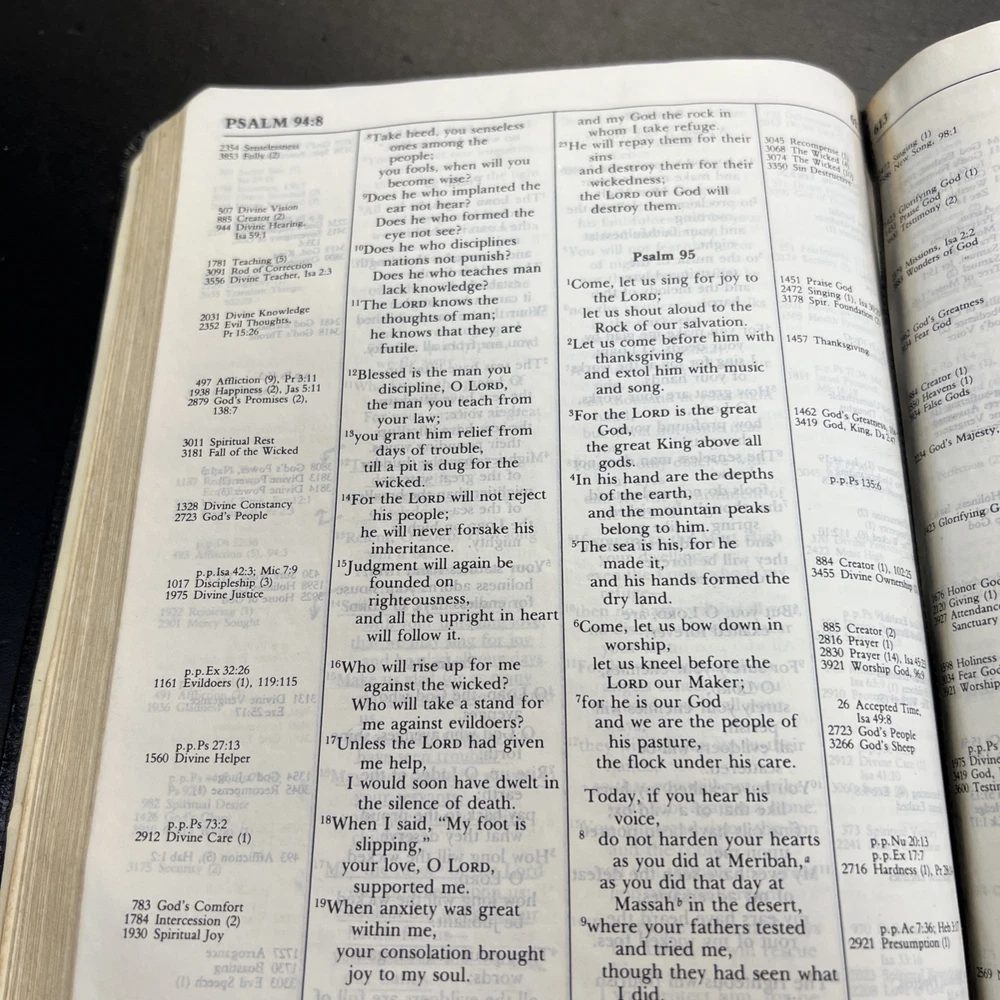 PSALM 94:8
2354 Senselessness
3853 Folly (2)
507 Divine Vision
885 Creator (2)
944 Divine Hearing,
Isa 59:1
1781 Teaching (5)
3091 Rod of Correction
3556 Divine Teacher, Isa 2:3
2031 Divine Knowledge
2352 Evil Thoughts,
Pr 15:26
497 Affliction (9), Pr 3:11
1938 Happiness (2), Jas 5:11
2879 God's Promises (2),
138:7
3011 Spiritual Rest
3181 Fall of the Wicked
1328 Divine Constancy
2723 God's People
p.p.Isa 42:3; Mic 7:9
1017 Discipleship (3)
1975 Divine Justice
p.p.Ex 32:26
1161 Evildoers (1), 119:115
p.p.Ps 27:13
1560 Divine Helper
p.p.Ps 73:2
2912 Divine Care (1)
783 God's Comfort
1784 Intercession (2)
1930 Spiritual Joy
⁸Take heed, you senseless
ones among the
people;
you fools, when will you
become wise?
⁹Does he who implanted the
ear not hear?
Does he who formed the
eye not see?
¹⁰Does he who disciplines
nations not punish?
Does he who teaches man
lack knowledge?
¹¹The LORD knows the
thoughts of man;
he knows that they are
futile.
¹²Blessed is the man you
discipline, O LORD,
the man you teach from
your law;
¹³you grant him relief from
days of trouble,
till a pit is dug for the
wicked.
¹⁴For the LORD will not reject
his people;
he will never forsake his
inheritance.
¹⁵Judgment will again be
founded on
righteousness,
and all the upright in heart
will follow it.
¹⁶Who will rise up for me
against the wicked?
Who will take a stand for
me against evildoers?
¹⁷Unless the LORD had given
me help,
I would soon have dwelt in
the silence of death.
¹⁸When I said, “My foot is
slipping,”
your love, O LORD,
supported me.
¹⁹When anxiety was great
within me,
your consolation brought
joy to my soul.
and my God the rock in
whom I take refuge.
²³He will repay them for their
sins
and destroy them for their
wickedness;
the LORD our God will
destroy them.
Psalm 95
¹Come, let us sing for joy to
the LORD;
let us shout aloud to the
Rock of our salvation.
²Let us come before him with
thanksgiving
and extol him with music
and song,
³For the LORD is the great
God,
the great King above all
gods.
⁴In his hand are the depths
of the earth,
and the mountain peaks
belong to him.
⁵The sea is his, for he
made it,
and his hands formed the
dry land.
⁶Come, let us bow down in
worship,
let us kneel before the
LORD our Maker;
⁷for he is our God
and we are the people of
his pasture,
the flock under his care.
Today, if you hear his
voice,
⁸ do not harden your hearts
as you did at Meribah,ᵃ
as you did that day at
Massahᵇ in the desert,
⁹where your fathers tested
and tried me,
though they had seen what
I did.
3045 Recompense
3068 The Wicked
3074 The Wicked
3350 Sin Destructive
1451 Praise God
2472 Singing (1),
3178 Spir. Foundation
1457 Thanksgiving
1462 God's Greatness,
3419 God, King, Da 2:47
p.p.Ps 135:6
884 Creator (1), 102:25
3455 Divine Ownership
885 Creator (2)
2816 Prayer (1)
2830 Prayer (14), Isa 45:23
3921 Worship God, 96:9
26 Accepted Time,
Isa 49:8
2723 God's People
3266 God's Sheep
p.p.Nu 20:13
p.p.Ex 17:7
2716 Hardness (1),
p.p.Ac 7:36;
2921 Presumption (1)
613
Singing (1)
New Song,
98:1
Glorifying God (1)
Praise God
Testimony (2)
Missions, Isa 2:2
Wonders of God
God's Greatness
Fear God
Creator (1)
Heavens (1)
False Gods
God's Majesty,
Glorifying G
Honor God
Giving (1)
Attendance
Sanctuary
Holiness
Fear God
Worship
p.p.Ps
Divine
God,